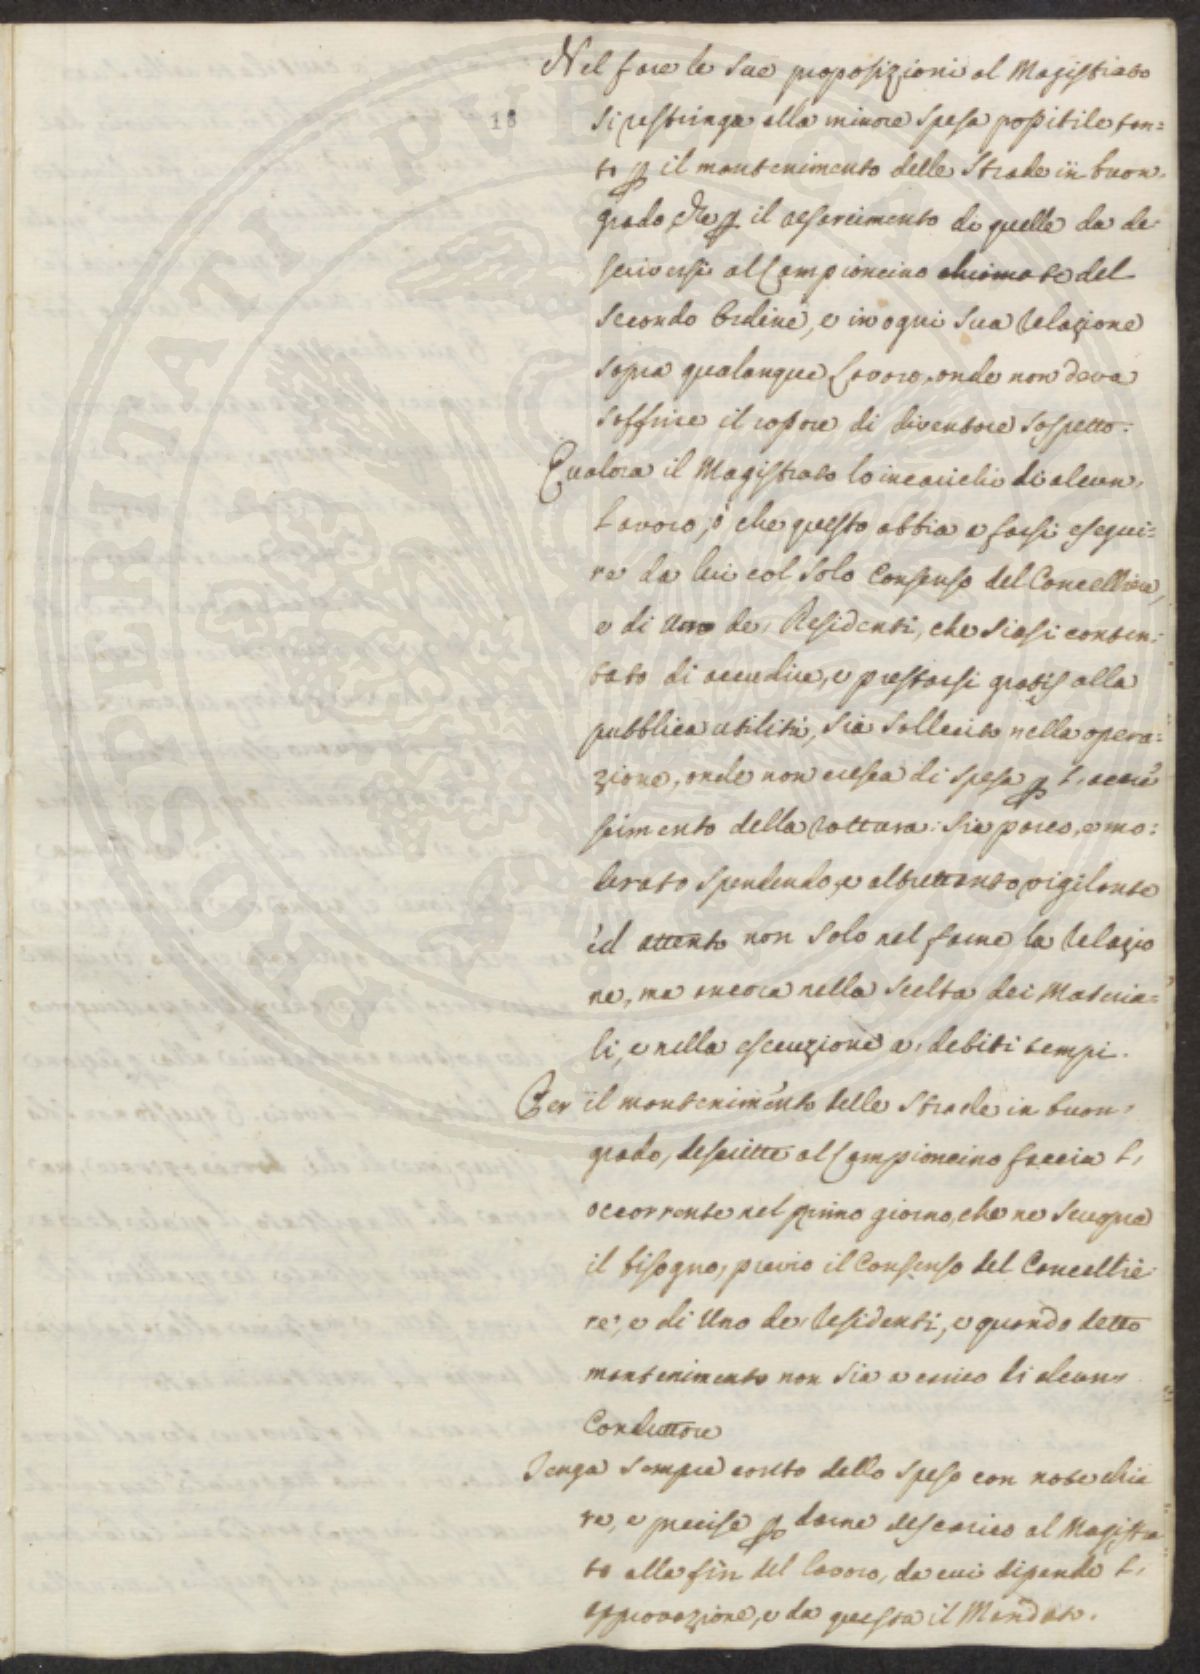 Nel fare le sue proposizioni al Magistrato
18
si restringa alla minore spesa possibile tan=
to p il mantenimento delle Strade in buon,
grado, che p il resarcimento di quelle da de-
scriversi al Campioncino chiamato del
secondo Ordine, e in ogni sua relazione
sopra qualunque Lavoro, onde non deva
soffrire il rossore di diventare sospetto.
Qualora il Magistrato lo incarichi di alcun,
Lavoro, ò che questo abbia a farsi esegui=
re da lui col solo Consenso del Cancelliere,
e di Uno de, Residenti, che siasi conten=
tato di accudire, e prestarsi gratis alla
pubblica utilità, sia sollecito nella opera=
zione, onde non cresca di spesa p l, accre
scimento della rottura: sia parco, e mo=
derato spendendo, e altrettanto vigilante
ed attento non solo nel farne la relazio
ne, ma ancora nella scelta dei Materia=
li, e nella esecuzione a, debiti tempi.
Per il mantenimento delle strade in buon,
grado, descritte al Campioncino faccia l,
occorrente nel primo giorno, che ne scuopra
il bisogno, previo il Consenso del Cancellie
re, e di Uno de, Residenti, e quando detto
mantenimento non sia a carico di alcun,
Conduttore
Tenga sempre conto delle spese con note chia
re, e precise p darne discarico al Magistra
to alla fin del lavoro, da cui dipende l,
approvazione, e da questa il Mandato.